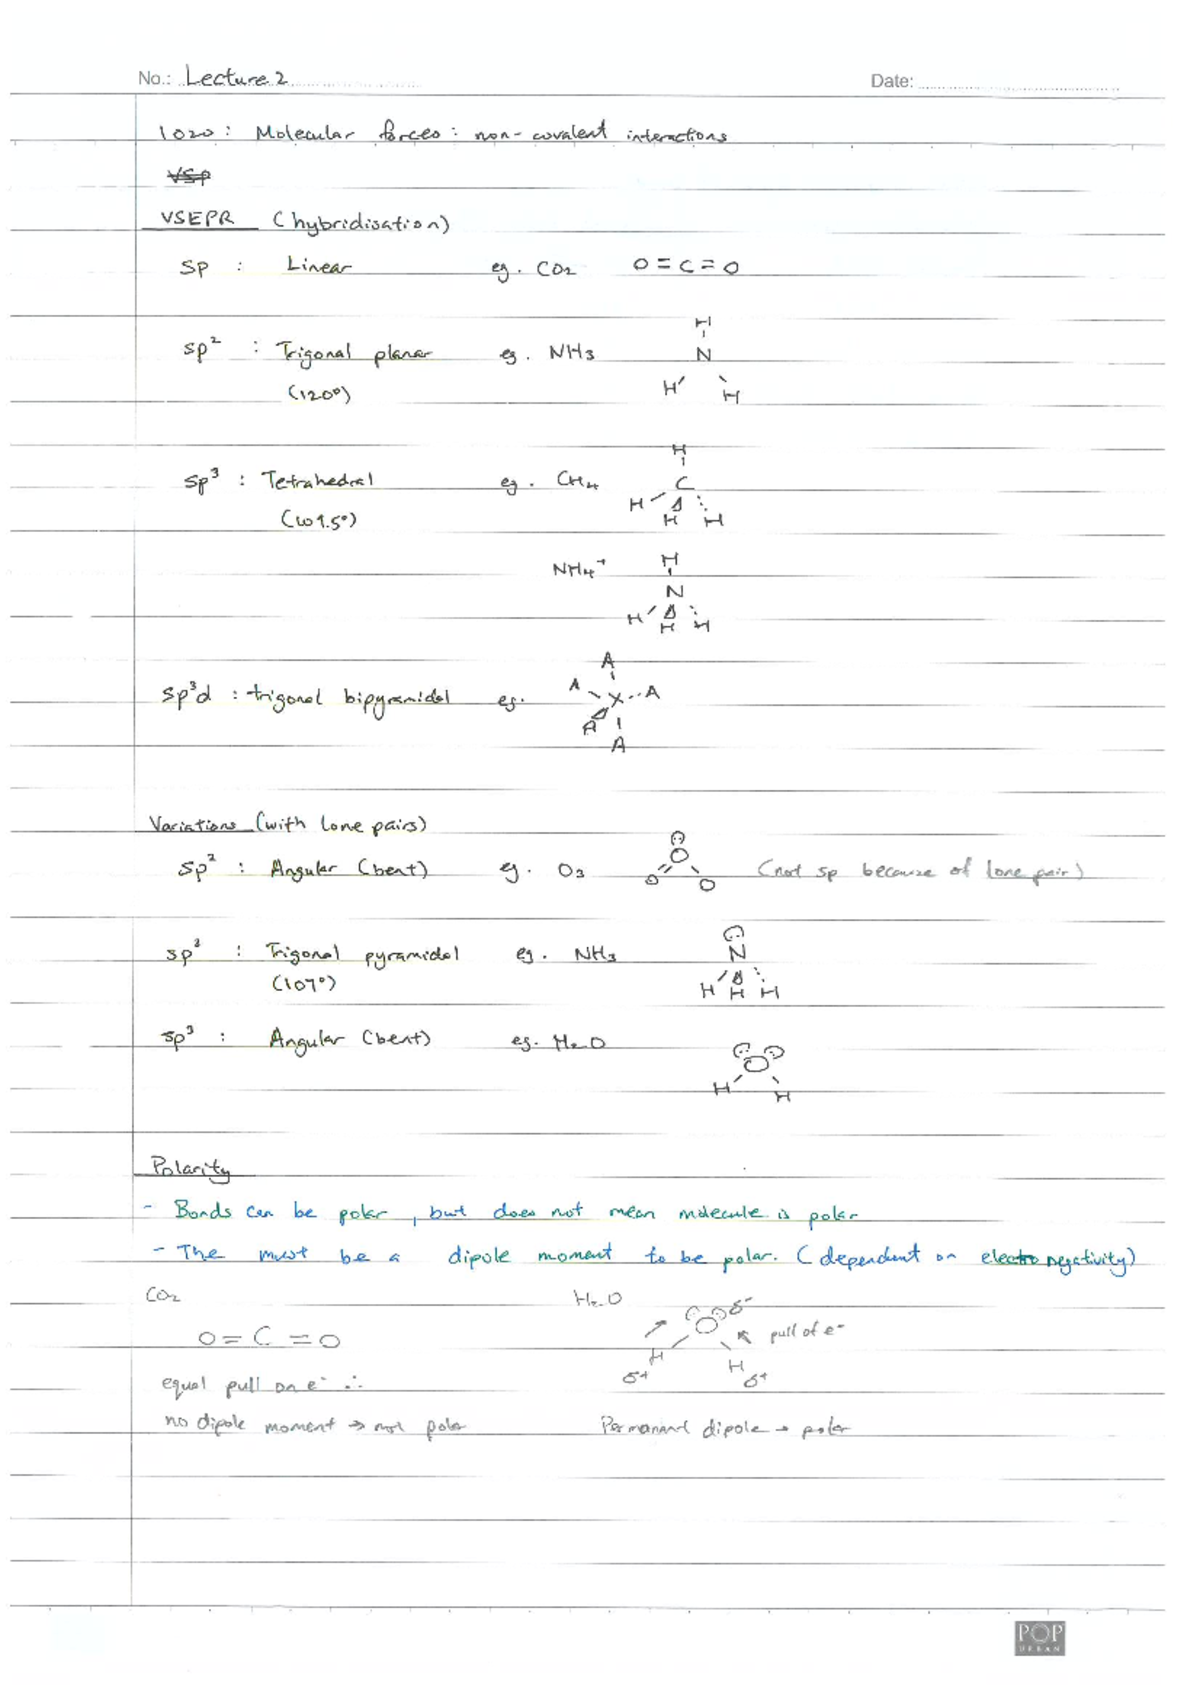 No.: Lecture 2 Date:
1020 : Molecular forces : non-covalent interactions
VSP
VSEPR (hybridisation)
sp : Linear eg. CO₂ O=C=O
H
sp² : Trigonal planar eg. NH₃ N
(120°) H H
H
sp³ : Tetrahedral eg. CH₄ C
(109.5°) H H H
NH₄⁺ H
N
H H H
A
sp³d : trigonal bipyramidal eg. A X A
A
A
Variations (with lone pairs)
sp² : Angular (bent) eg. O₃ O O O (not sp because of lone pair)
sp³ : Trigonal pyramidal eg. NH₃ N
(107°) H H H
sp³ : Angular (bent) eg. H₂O O
H H
Polarity
- Bonds can be polar, but does not mean molecule is polar
- The must be a dipole moment to be polar. (dependent on electronegativity)
CO₂ H₂O δ-
O=C=O O pull of e⁻
H H
equal pull on e⁻ ∴ δ+ δ+
no dipole moment → not polar Permanant dipole → polar
POP
URBAN